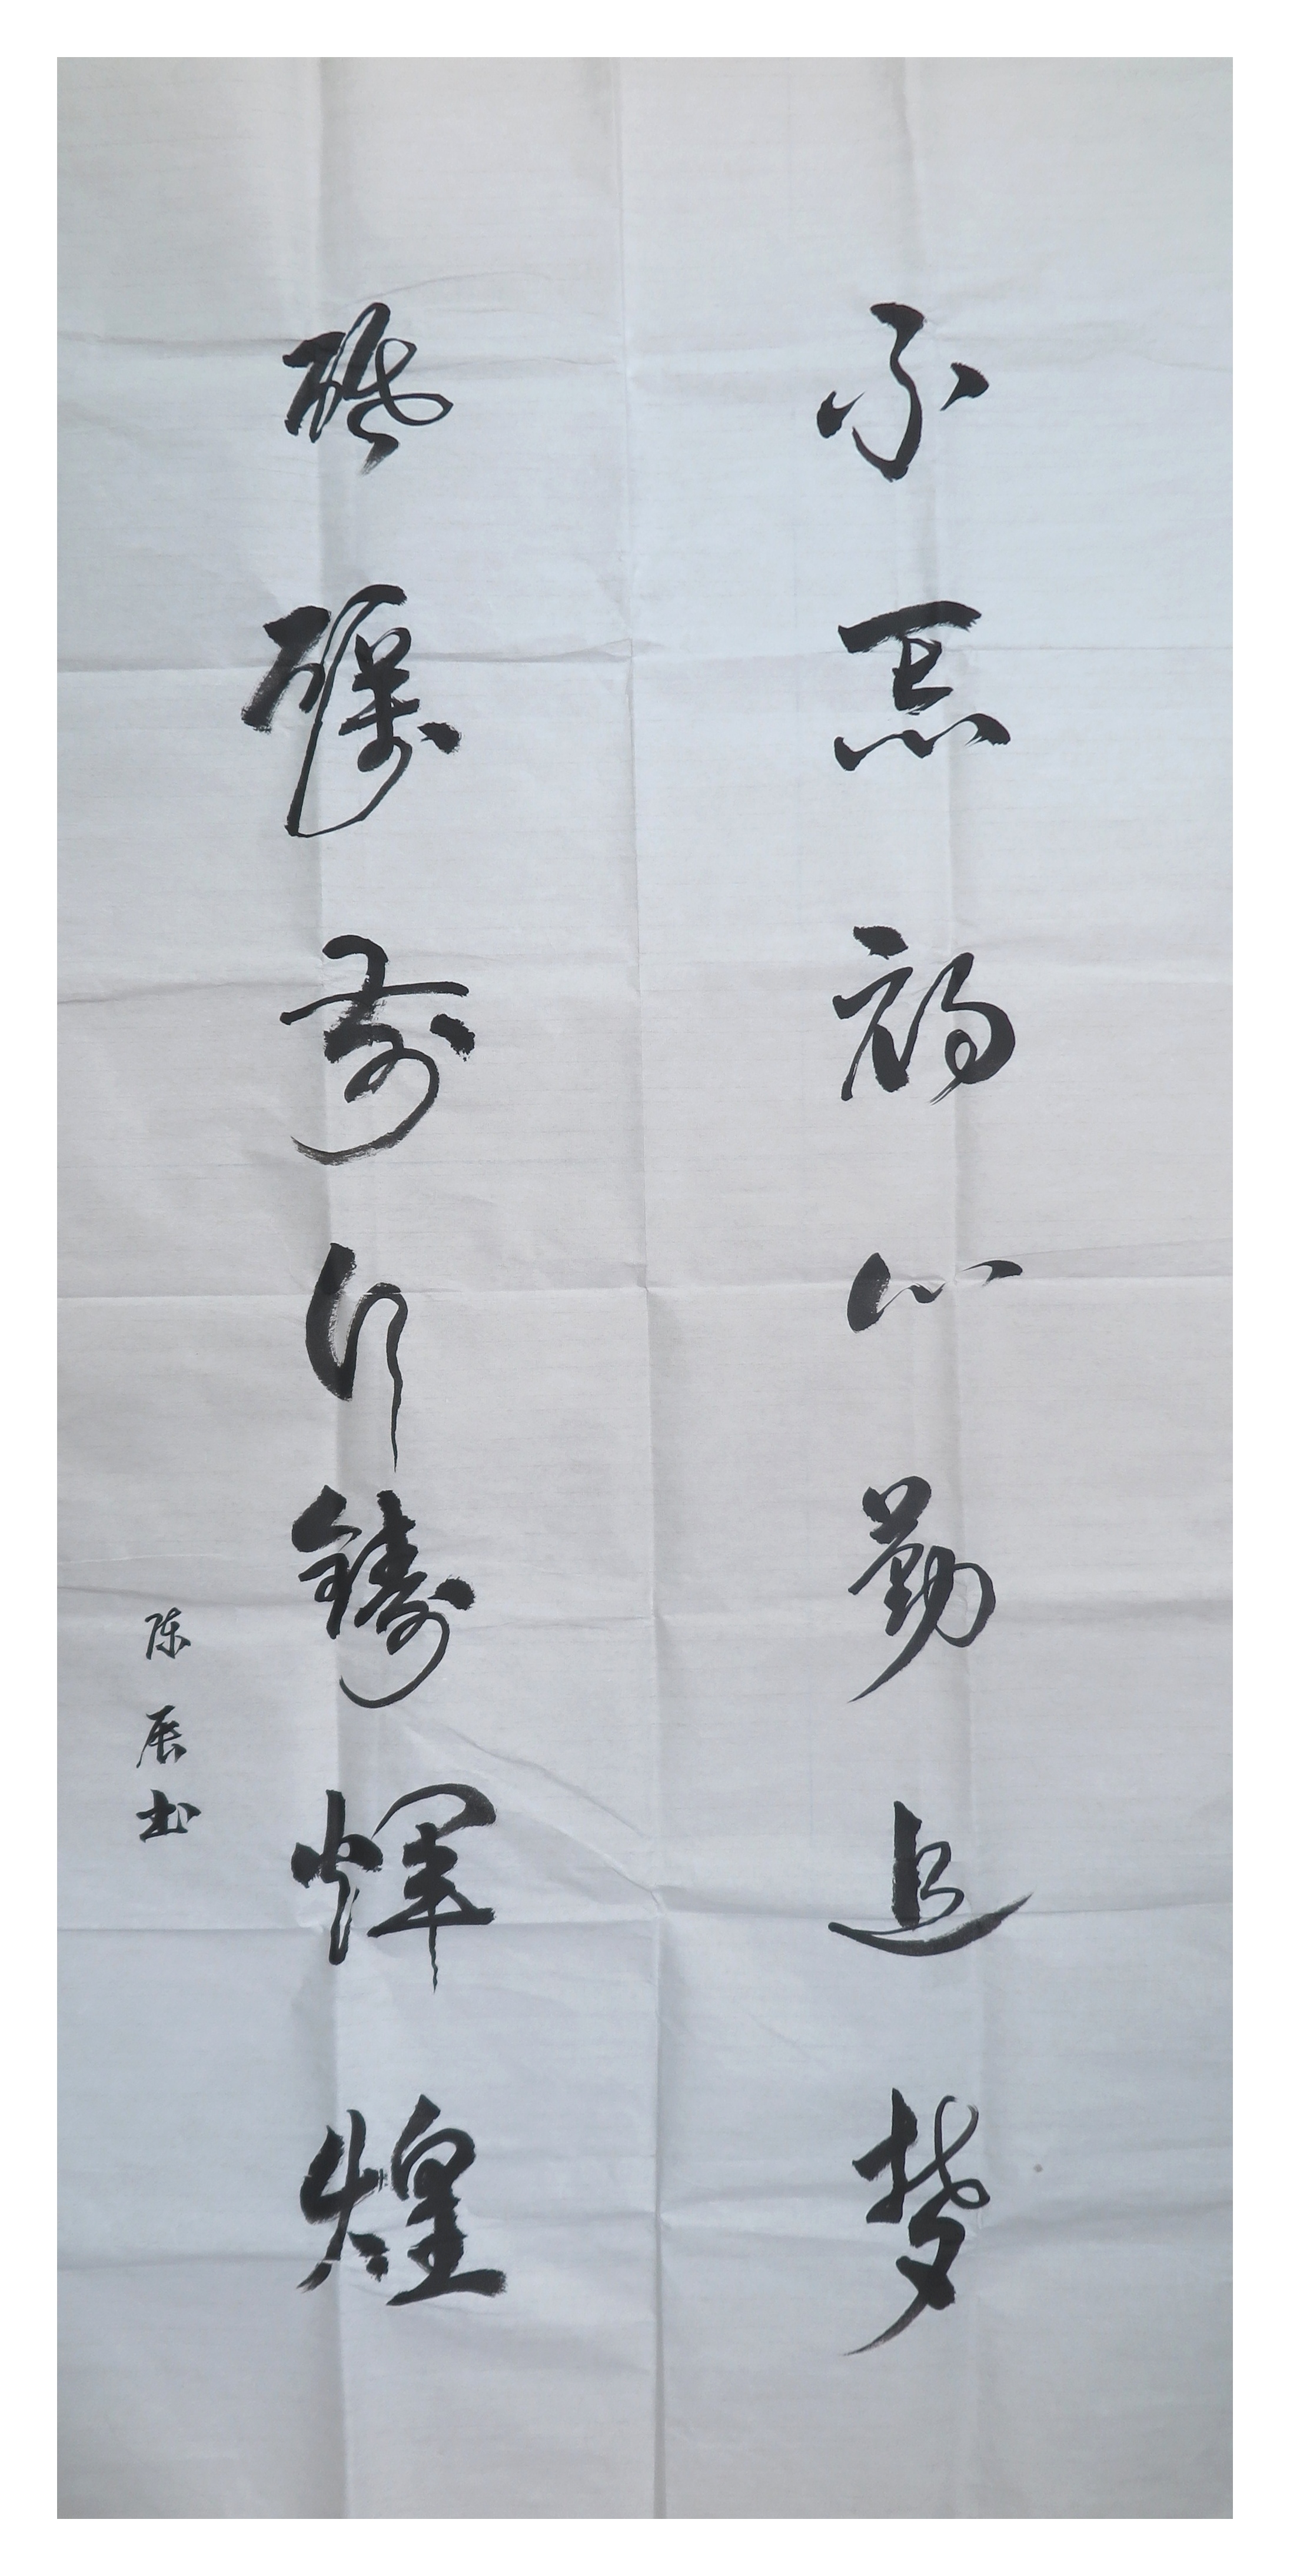 不忘初心勤追梦
砥砺前行铸辉煌
陈辰书